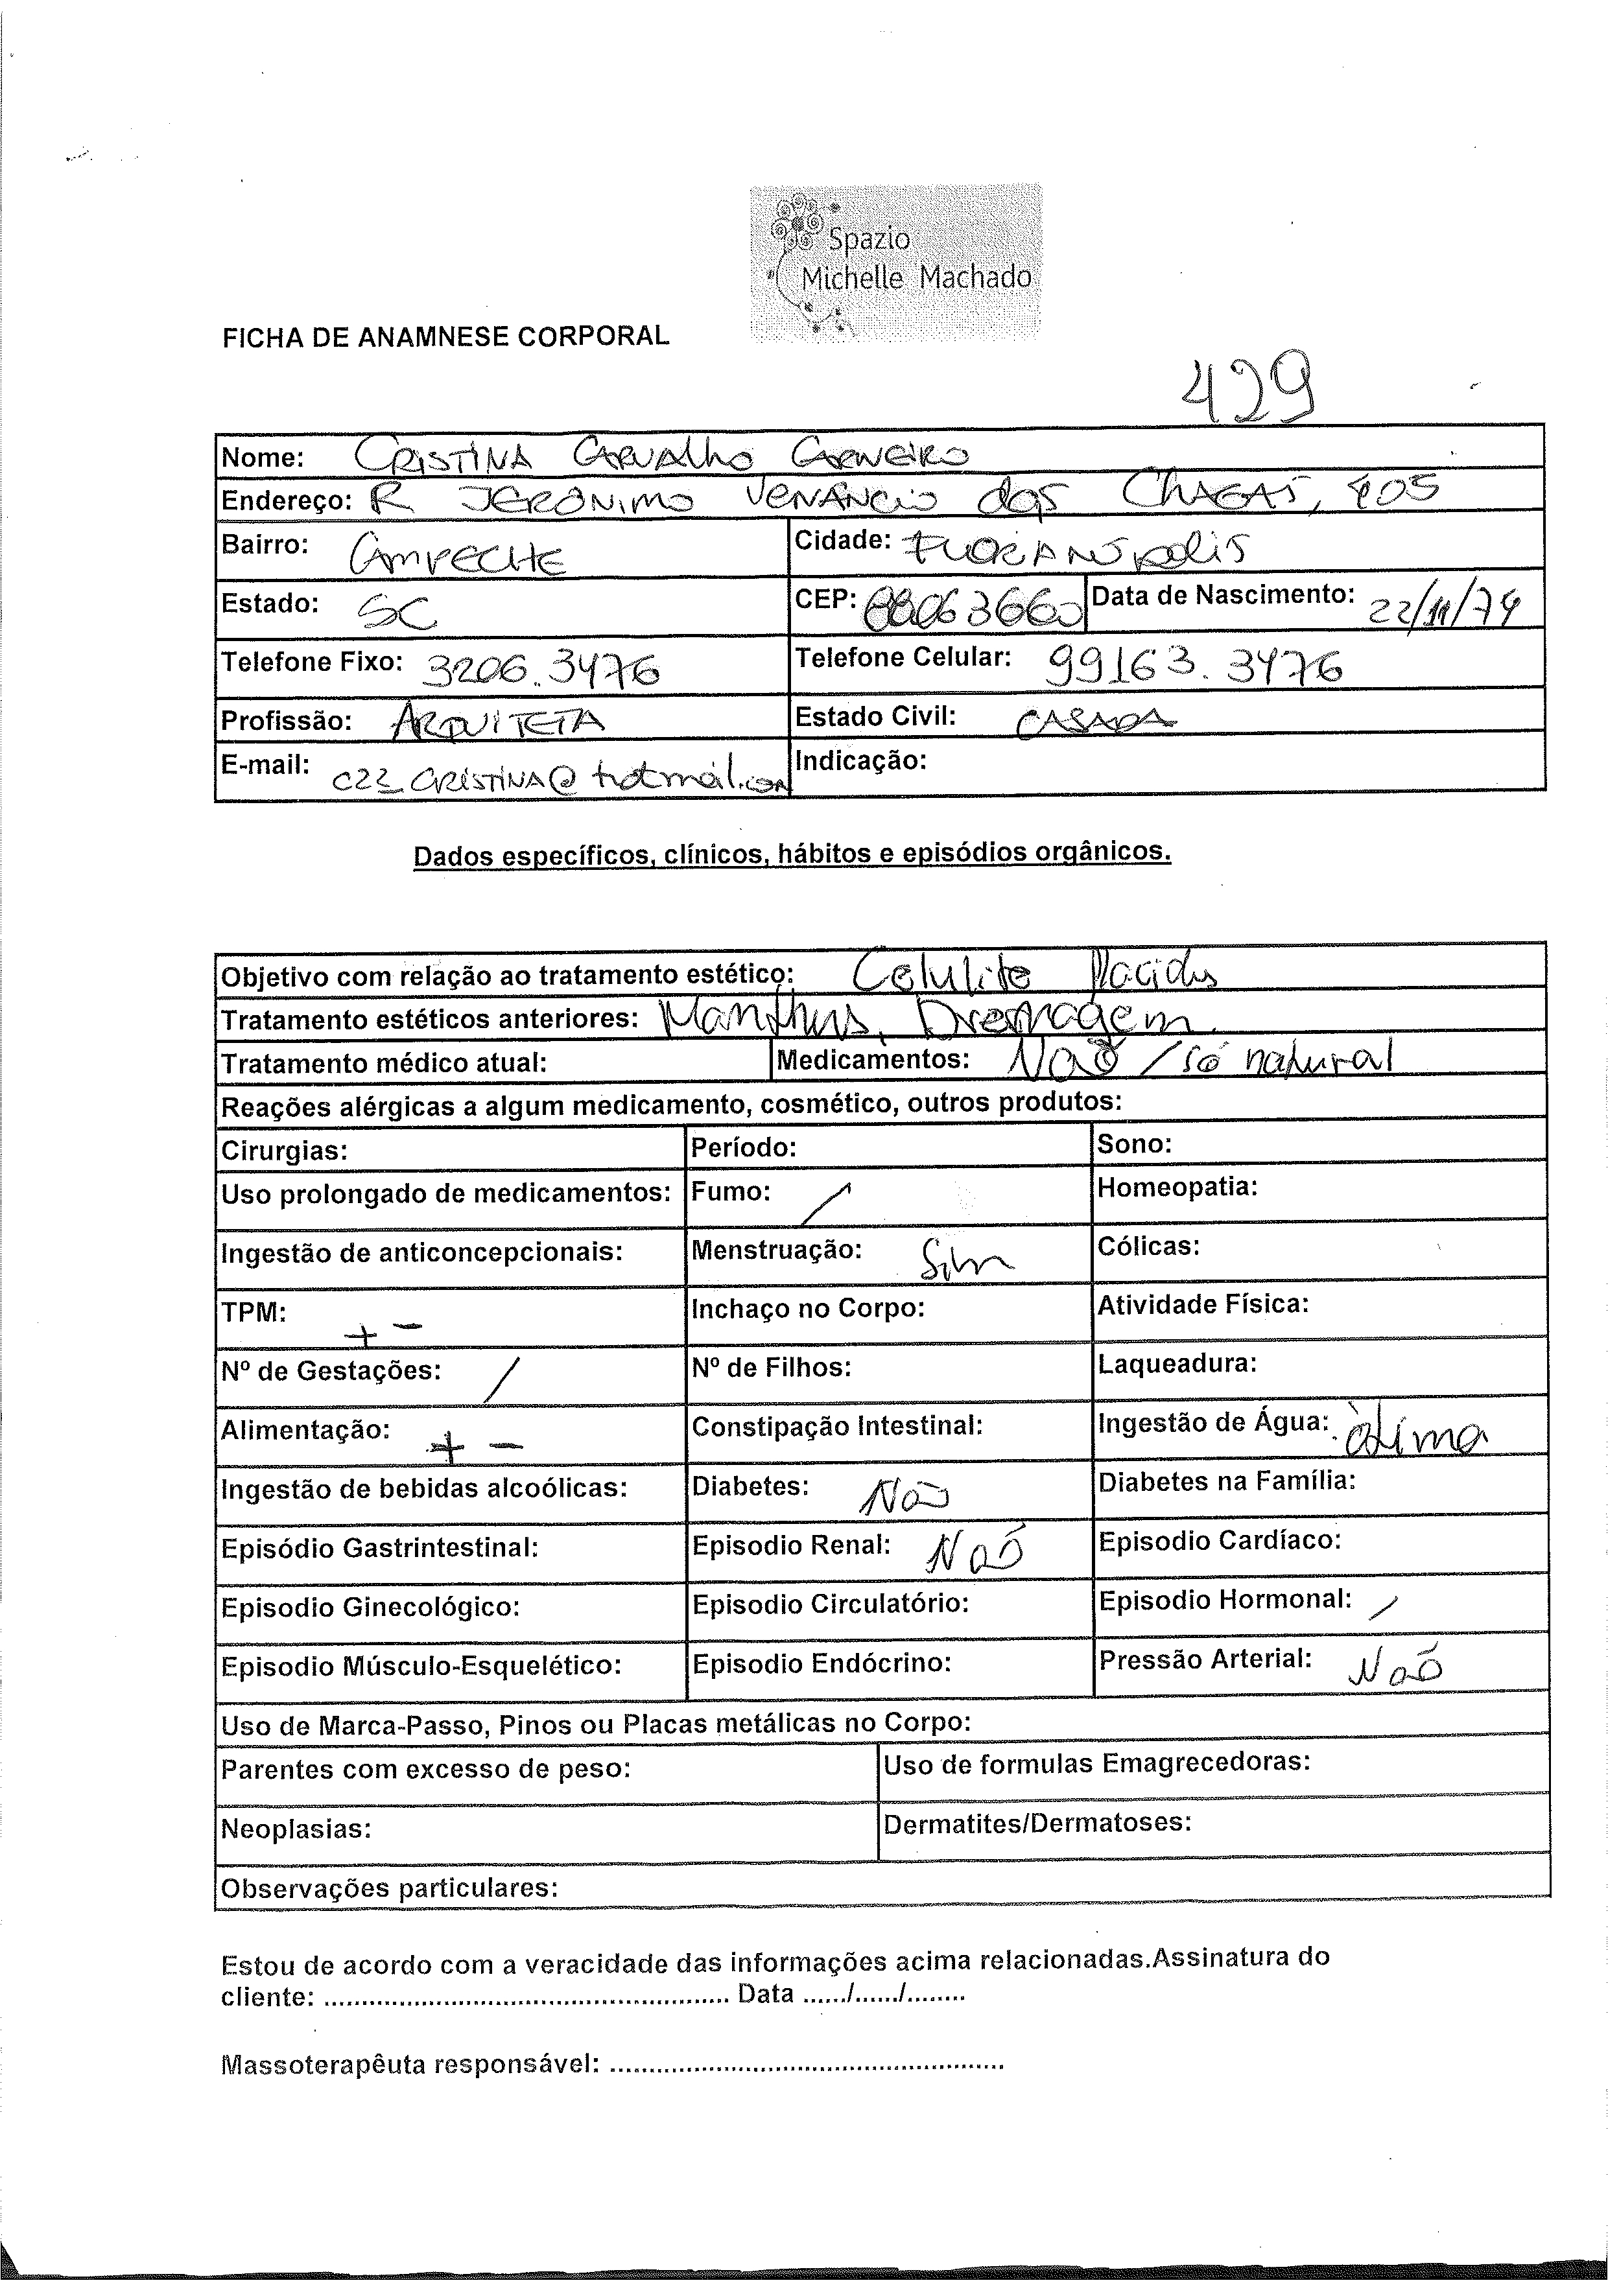 Spazio
Michelle Machado
FICHA DE ANAMNESE CORPORAL
429
Nome: CRISTINA CARVALHO CARNEIRO
Endereço: R JERÔNIMO VENÂNCIO das CHAGAS, 405
Bairro: CAMPECHE Cidade: FLORIANÓPOLIS
Estado: SC CEP: 88063660 Data de Nascimento: 22/11/74
Telefone Fixo: 3206.3476 Telefone Celular: 99163.3476
Profissão: ARQUITETA Estado Civil: CASADA
E-mail: c22_cristina@hotmail.com Indicação:
Dados específicos, clínicos, hábitos e episódios orgânicos.
Objetivo com relação ao tratamento estético: Celulite flacidez
Tratamento estéticos anteriores: Manthus, Drenagem.
Tratamento médico atual: Medicamentos: Não / só natural
Reações alérgicas a algum medicamento, cosmético, outros produtos:
Cirurgias: Período: Sono:
Uso prolongado de medicamentos: Fumo: / Homeopatia:
Ingestão de anticoncepcionais: Menstruação: Sim Cólicas:
TPM: + - Inchaço no Corpo: Atividade Física:
Nº de Gestações: / Nº de Filhos: Laqueadura:
Alimentação: + - Constipação Intestinal: Ingestão de Água: ótima
Ingestão de bebidas alcoólicas: Diabetes: Não Diabetes na Família:
Episódio Gastrintestinal: Episodio Renal: Não Episodio Cardíaco:
Episodio Ginecológico: Episodio Circulatório: Episodio Hormonal: /
Episodio Músculo-Esquelético: Episodio Endócrino: Pressão Arterial: Não
Uso de Marca-Passo, Pinos ou Placas metálicas no Corpo:
Parentes com excesso de peso: Uso de formulas Emagrecedoras:
Neoplasias: Dermatites/Dermatoses:
Observações particulares:
Estou de acordo com a veracidade das informações acima relacionadas.Assinatura do
cliente: ...................................................... Data ....../....../........
Massoterapêuta responsável: ....................................................